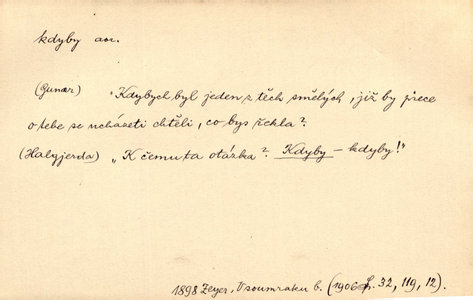 kdyby aor.
(Gunar) "Kdybych byl jeden z těch smělých, již by přece
o tebe se ucházeti chtěli, co bys řekla?
(Halgjerda) „K čemu ta otázka? Kdyby – kdyby!"
1898 Zeyer, V soumraku b. (1906 32, 119, 12).